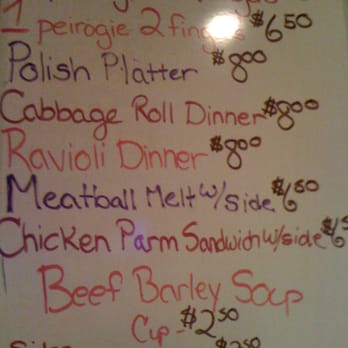 1 peirogie 2 fingers $6.50
Polish Platter $8.00
Cabbage Roll Dinner $8.00
Ravioli Dinner $8.00
Meatball Melt w/ side $6.50
Chicken Parm Sandwich w/side $6
Beef Barley Soup
Cup - $2.50